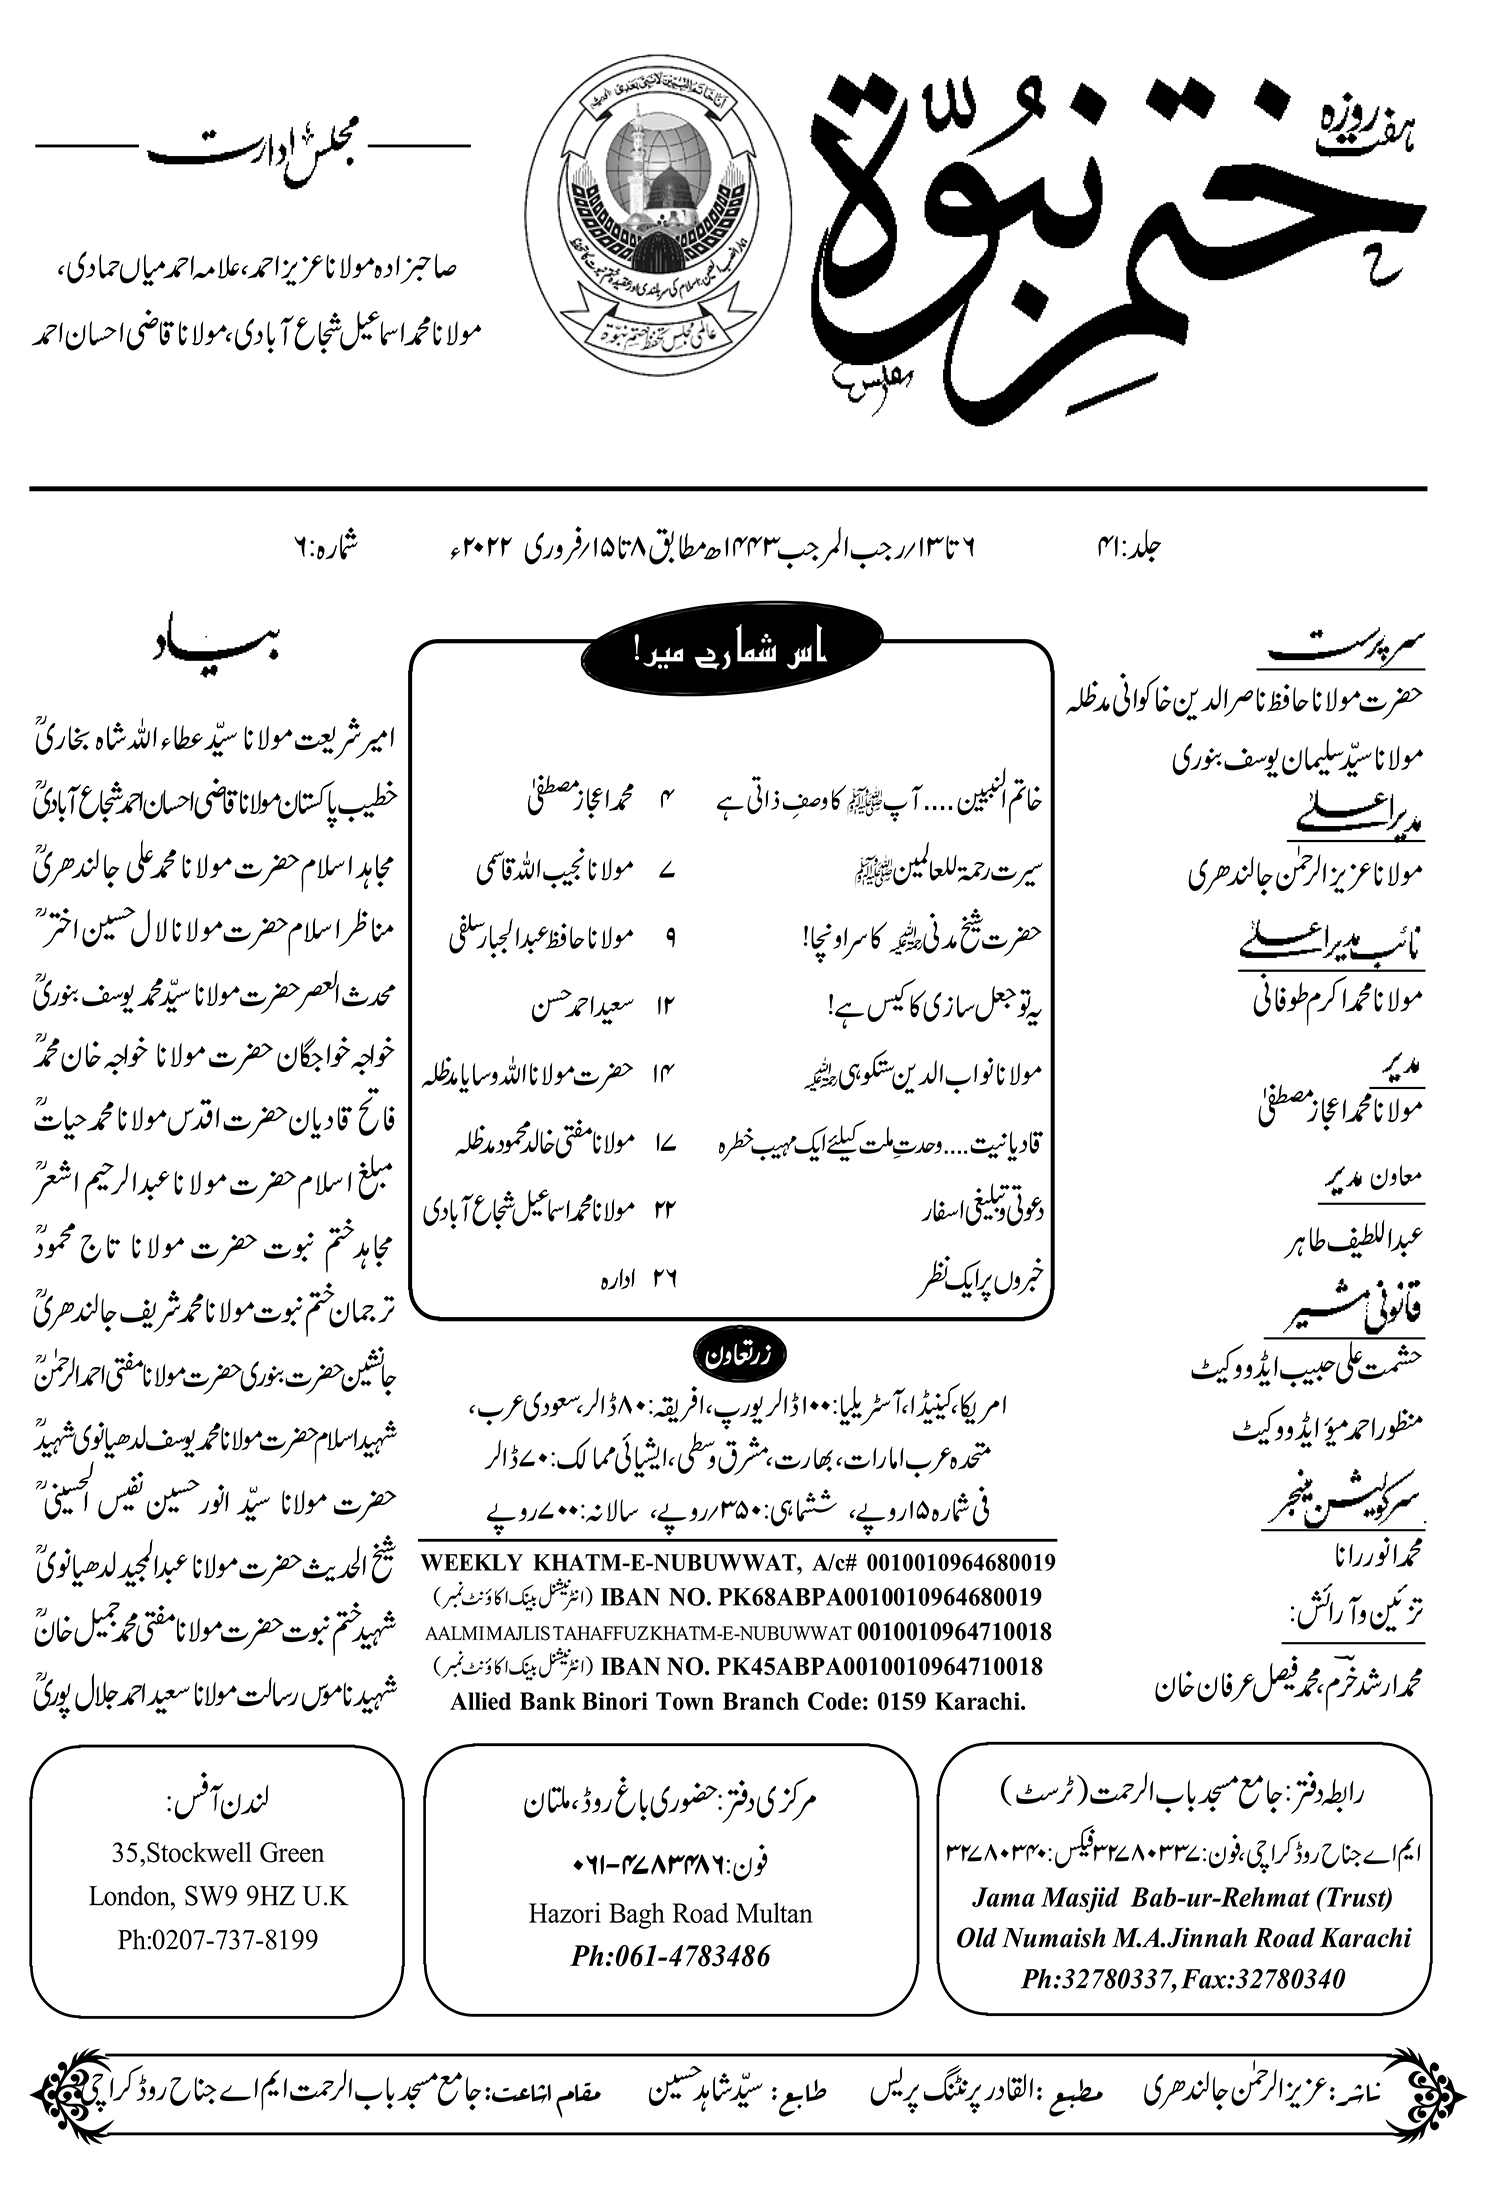 ہفت روزہ
ختم نبوۃ
مجلس ادارت
صاحبزادہ مولانا عزیز احمد، علامہ احمد میاں حمادی،
مولانا محمد اسماعیل شجاع آبادی، مولانا قاضی احسان احمد
عالمی مجلس تحفظ ختم نبوۃ
جلد: ۴۱
۶ تا ۱۳؍رجب المرجب ۱۴۴۳ھ مطابق ۸ تا ۱۵؍فروری ۲۰۲۲ء
شمارہ: ۶
سرپرست
حضرت مولانا حافظ ناصر الدین خاکوانی مدظلہ
مولانا سیّد سلیمان یوسف بنوری
مدیر اعلےٰ
مولانا عزیز الرحمٰن جالندھری
نائب مدیر اعلےٰ
مولانا محمد اکرم طوفانی
مدیر
مولانا محمد اعجاز مصطفیٰ
معاون مدیر
عبداللطیف طاہر
قانونی مشیر
حشمت علی حبیب ایڈووکیٹ
منظور احمد میؤ ایڈووکیٹ
سرکولیشن مینجر
محمد انور رانا
تزئین و آرائش:
محمد ارشد خرّم، محمد فیصل عرفان خان
اس شمارے میں!
خاتم النبیین.... آپ ﷺ کا وصفِ ذاتی ہے ۴ محمد اعجاز مصطفیٰ
سیرت رحمۃ للعالمین ﷺ ۷ مولانا نجیب اللہ قاسمی
حضرت شیخ مدنی رحمۃ اللہ علیہ کا سر اونچا! ۹ مولانا حافظ عبدالجبار سلفی
یہ تو جعل سازی کا کیس ہے! ۱۲ سعید احمد حسن
مولانا نواب الدین ستکوہی رحمۃ اللہ علیہ ۱۴ حضرت مولانا اللہ وسایا مدظلہ
قادیانیت.... وحدتِ ملت کیلئے ایک مہیب خطرہ ۱۷ مولانا مفتی خالد محمود مدظلہ
دعوتی و تبلیغی اسفار ۲۲ مولانا محمد اسماعیل شجاع آبادی
خبروں پر ایک نظر ۲۶ ادارہ
زرتعاون
امریکا، کینیڈا، آسٹریلیا: ۱۰۰ڈالر یورپ، افریقہ: ۸۰ڈالر، سعودی عرب،
متحدہ عرب امارات، بھارت، مشرق وسطی، ایشیائی ممالک: ۷۰ڈالر
فی شمارہ ۱۵روپے، ششماہی: ۳۵۰؍روپے، سالانہ: ۷۰۰روپے
WEEKLY KHATM-E-NUBUWWAT, A/c# 0010010964680019
IBAN NO. PK68ABPA0010010964680019 (انٹرنیشنل بینک اکاؤنٹ نمبر)
AALMIMAJLISTAHAFFUZKHATM-E-NUBUWWAT 0010010964710018
IBAN NO. PK45ABPA0010010964710018 (انٹرنیشنل بینک اکاؤنٹ نمبر)
Allied Bank Binori Town Branch Code: 0159 Karachi.
بیاد
امیر شریعت مولانا سیّد عطاء اللہ شاہ بخاریؒ
خطیب پاکستان مولانا قاضی احسان احمد شجاع آبادیؒ
مجاہد اسلام حضرت مولانا محمد علی جالندھریؒ
مناظر اسلام حضرت مولانا لال حسین اخترؒ
محدث العصر حضرت مولانا سیّد محمد یوسف بنوریؒ
خواجہ خواجگان حضرت مولانا خواجہ خان محمدؒ
فاتح قادیان حضرت اقدس مولانا محمد حیاتؒ
مبلغ اسلام حضرت مولانا عبدالرحیم اشعرؒ
مجاہد ختم نبوت حضرت مولانا تاج محمودؒ
ترجمان ختم نبوت مولانا محمد شریف جالندھریؒ
جانشین حضرت بنوری حضرت مولانا مفتی احمد الرحمٰنؒ
شہید اسلام حضرت مولانا محمد یوسف لدھیانوی شہیدؒ
حضرت مولانا سیّد انور حسین نفیس الحسینیؒ
شیخ الحدیث حضرت مولانا عبدالمجید لدھیانویؒ
شہید ختم نبوت حضرت مولانا مفتی محمد جمیل خانؒ
شہید ناموس رسالت مولانا سعید احمد جلال پوریؒ
رابطہ دفتر: جامع مسجد باب الرحمت (ٹرسٹ)
ایم اے جناح روڈ کراچی، فون: ۳۲۷۸۰۳۳۷ فیکس: ۳۲۷۸۰۳۴۰
Jama Masjid Bab-ur-Rehmat (Trust)
Old Numaish M.A.Jinnah Road Karachi
Ph:32780337, Fax:32780340
مرکزی دفتر: حضوری باغ روڈ، ملتان
فون: ۰۶۱-۴۷۸۳۴۸۶
Hazori Bagh Road Multan
Ph:061-4783486
لندن آفس:
35,Stockwell Green
London, SW9 9HZ U.K
Ph:0207-737-8199
ناشر: عزیز الرحمٰن جالندھری مطبع: القادر پرنٹنگ پریس طابع: سیّد شاہد حسین مقام اشاعت: جامع مسجد باب الرحمت ایم اے جناح روڈ کراچی